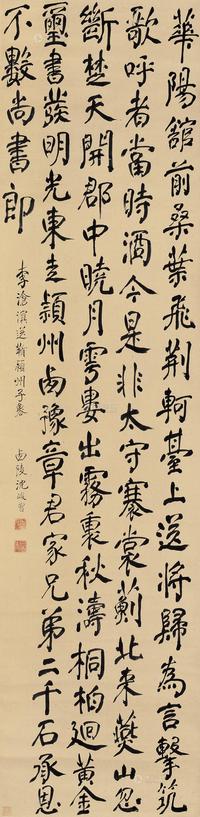 華陽舘前桑葉飛荆軻臺上送將歸為言擊筑
歌呼者當時酒今是非太守褰裳薊北來燕山忽
斷楚天開郡中曉月雩婁出霧裏秋濤桐柏廻黃金
璽書發明光東走潁州卥豫章君家兄弟二千石承恩
不數尚書郎
李滄溟送靳潁州子魯
卥陵沈峻曾